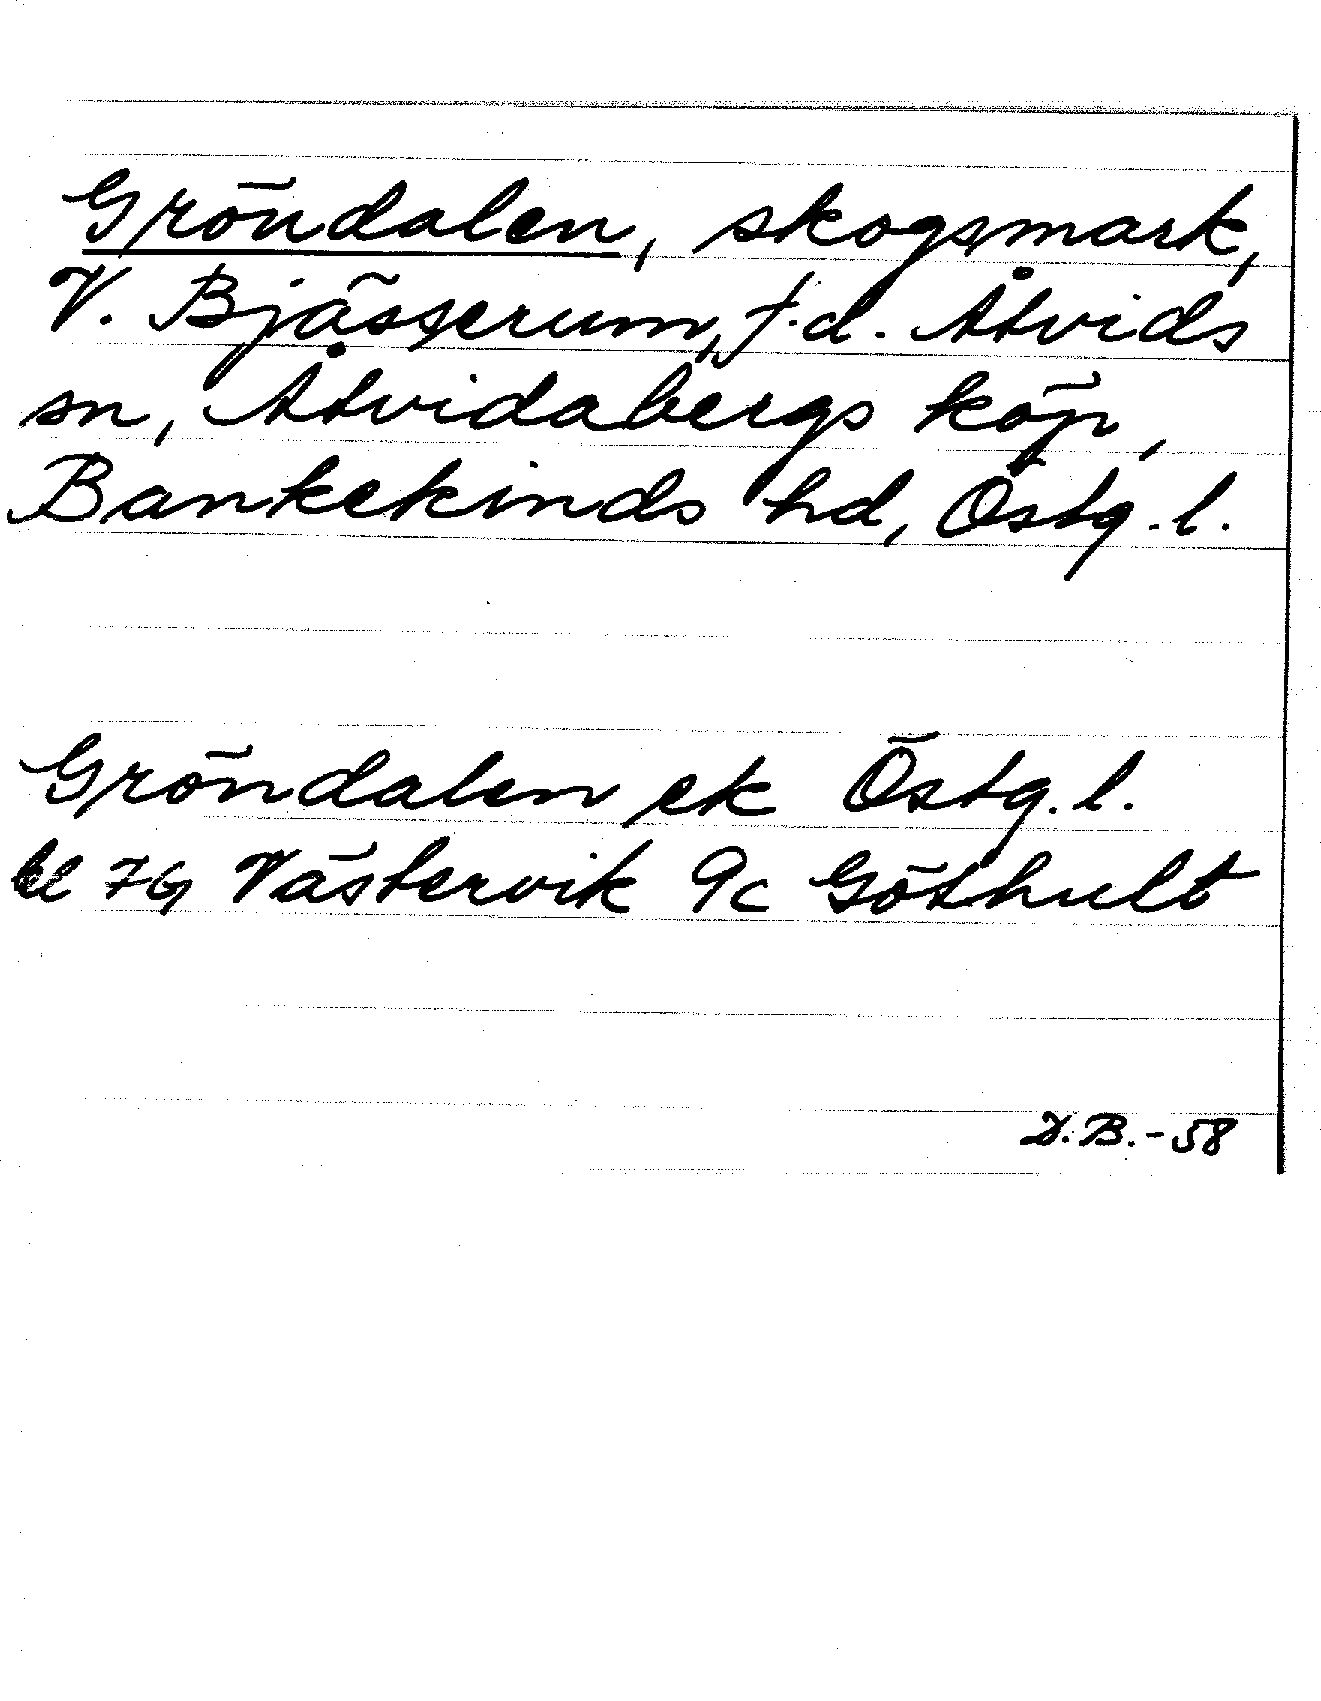 Gröndalen, skogsmark,
V. Bjässerum, f.d. Åtvids
sn, Åtvidabergs köp,
Bankekinds hd, Östg. l.
Gröndalen ek Östg. l.
bl 7G Västervik 9c Göthult
D.B.-58